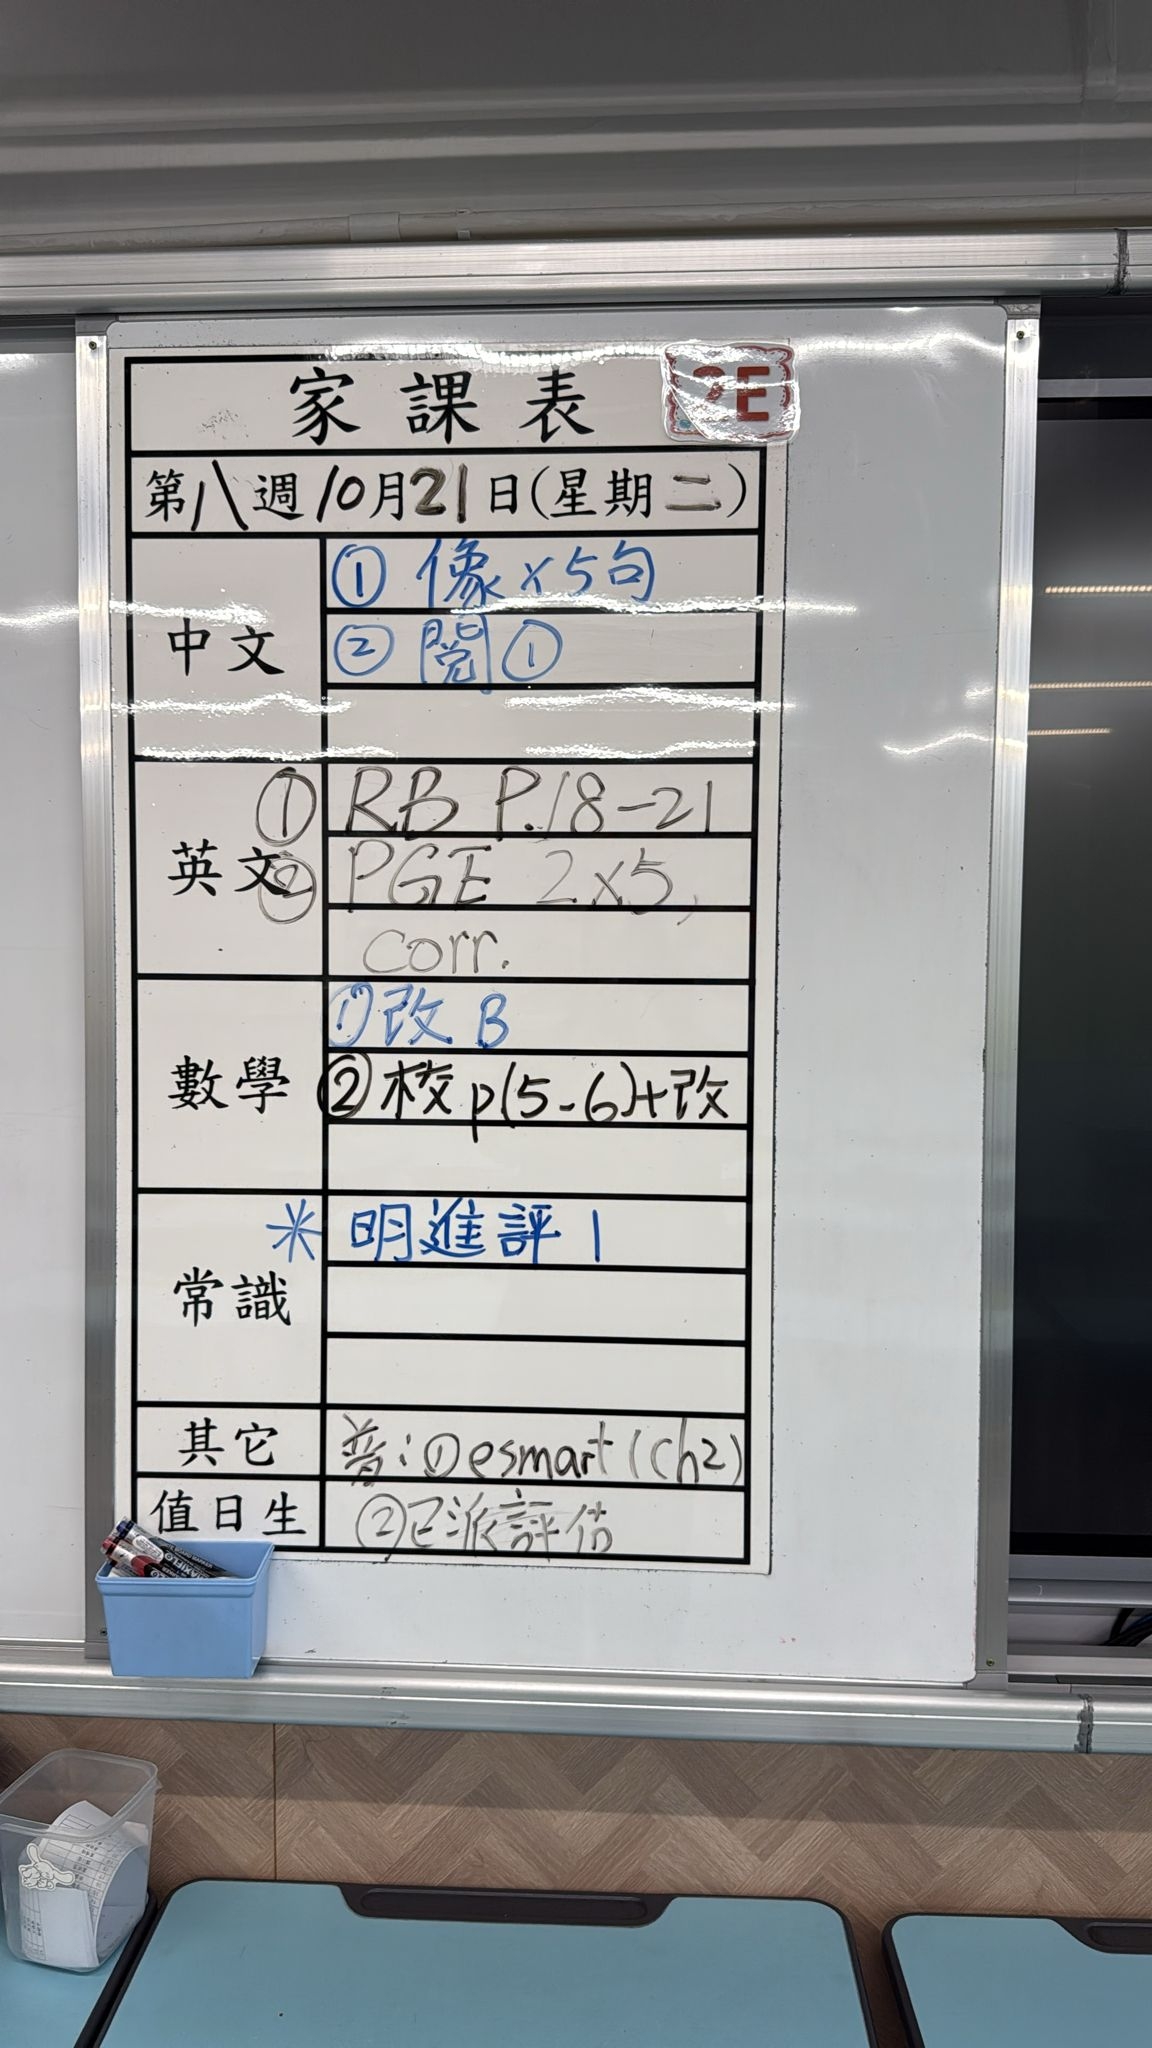 家課表
E
第八週10月21日(星期二)
中文
① 像x5句
② 閱①
英文
① RB P.18-21
② PGE 2x5,
corr.
數學
① 改 B
② 校 p(5-6)+改
常識
* 明進評1
其它
普：① esmart (ch2)
值日生
② 已派評估